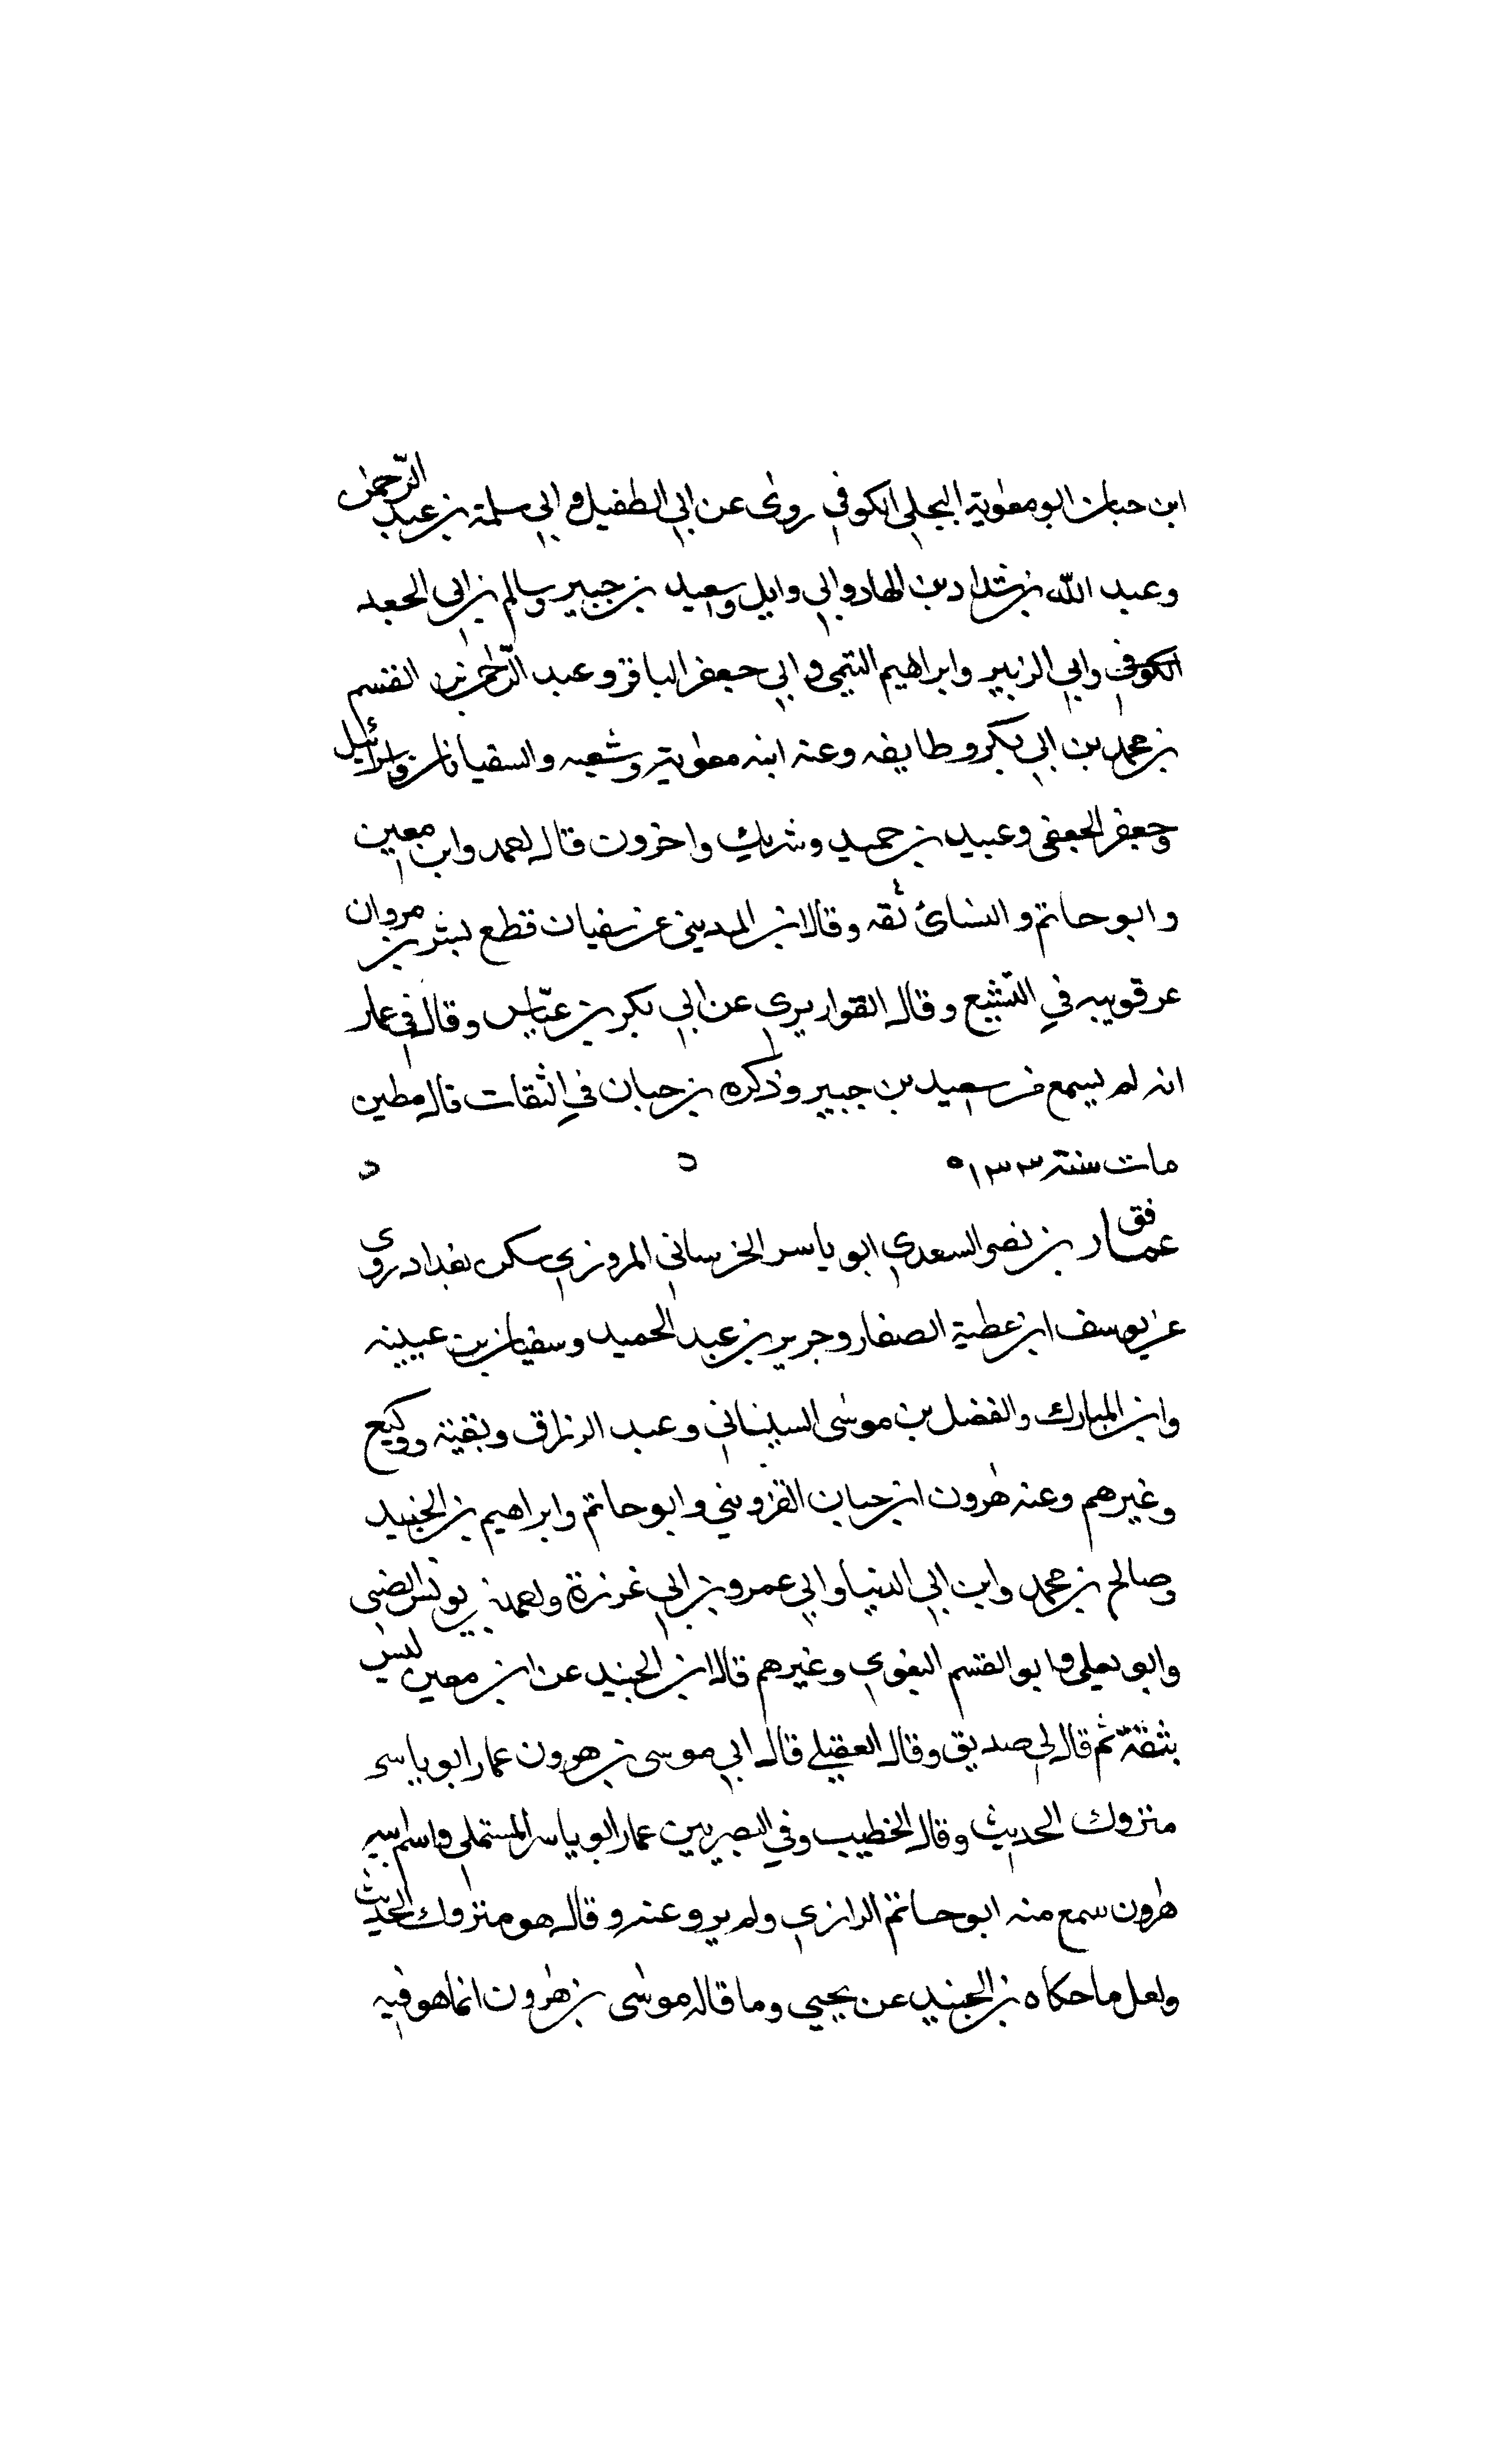 ابن حبان ابو معٰوية البجلي الكوفي روى عن ابي الطفيل وابي سلمة بن عبد الرّحمٰن
وعبد الله بن شداد بن الهاد وابي وايل وسعيد بن جبير وسالم بن ابي الجعد
الكوفي وابي الزبير وابراهيم التيمي وابي جعفر الباقر وعبد الرّحمٰن بن القسم
بن محمد بن ابي بكر وطايفه وعنه ابنه معٰوية وشعبه والسفيانان واسرائيل
وجعفر الجعفي وعبيد بن حميد وشريك واخرون قال احمد وابن معين
وابو حاتم والنسائ ثقه وقال ابن المديني عن سفيان قطع بشر بن مروان
عرقوبيه في التّشيع وقال القواريري عن ابي بكر بن عيّاش وقال في عمار
انه لم يسمع من سعيد بن جبير وذكره بن حبان في الثقات قال مطين
مات سنة ١٣٣ ه
فق
عمار بن نصر السعدي ابو ياسر الخرساني المروزي سكن بغداد روى
عن يوسف ابن عطية الصفار وجرير بن عبد الحميد وسفيان بن عيينه
وابن المبارك والفضل بن موسٰى السيناني وعبد الرزاق وبقية ووكيع
وغيرهم وعنه هٰرون ابن حبان القزويني وابو حاتم وابراهيم بن الجنيد
وصالح بن محمد وابن ابي الدنيا وابي عمرو بن ابي غرزة واحمد بن يونس الضبي
وابو يعلى وابو القسم البغوي وغيرهم قال ابن الجنيد عن ابن معين ليس
بثقة ثم قال لي صديق وقال العقيلي قال لي موسى بن هرون عمار ابو ياسر
متروك الحديث وقال الخطيب وفي البصريين عمار ابو ياسر المستملي واسم ابيه
هٰرون سمع منه ابو حاتم الرازي ولم يرو عنه وقال هو متروك الحديث
ولعل ما حكاه بن الجنيد عن يحيي وما قاله موسٰى بن هٰرون انما هو فيه